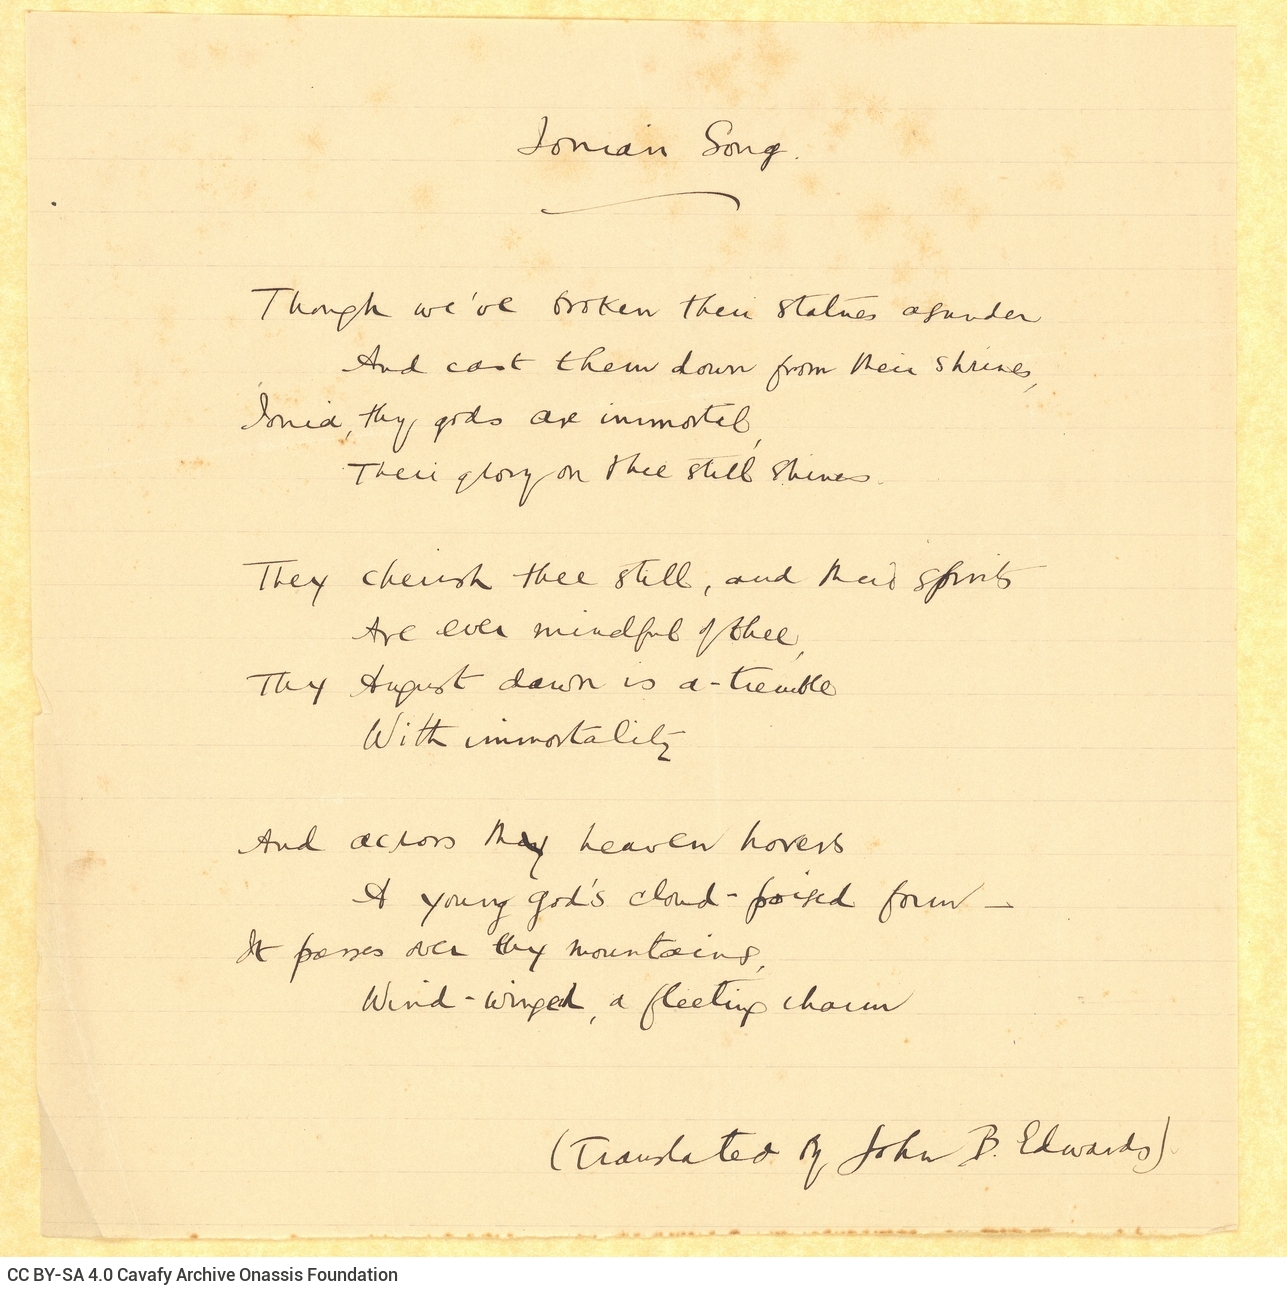 Ionian Song.
Though we've broken their statues asunder
And cast them down from their shrines,
Ionia, thy gods are immortal,
Their glory on thee still shines.
They cherish thee still, and their spirits
Are ever mindful of thee,
Thy August dawn is a-tremble
With immortality
And across thy heaven hovers
A young god's cloud-poised form —
It passes over thy mountains,
Wind-winged, a fleeting charm
(Translated by John B. Edwards)
CC BY-SA 4.0 Cavafy Archive Onassis Foundation